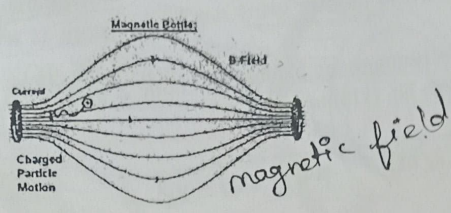 Magnetic Bottle
B-Field
Current
Charged
Particle
Motion
magnetic field